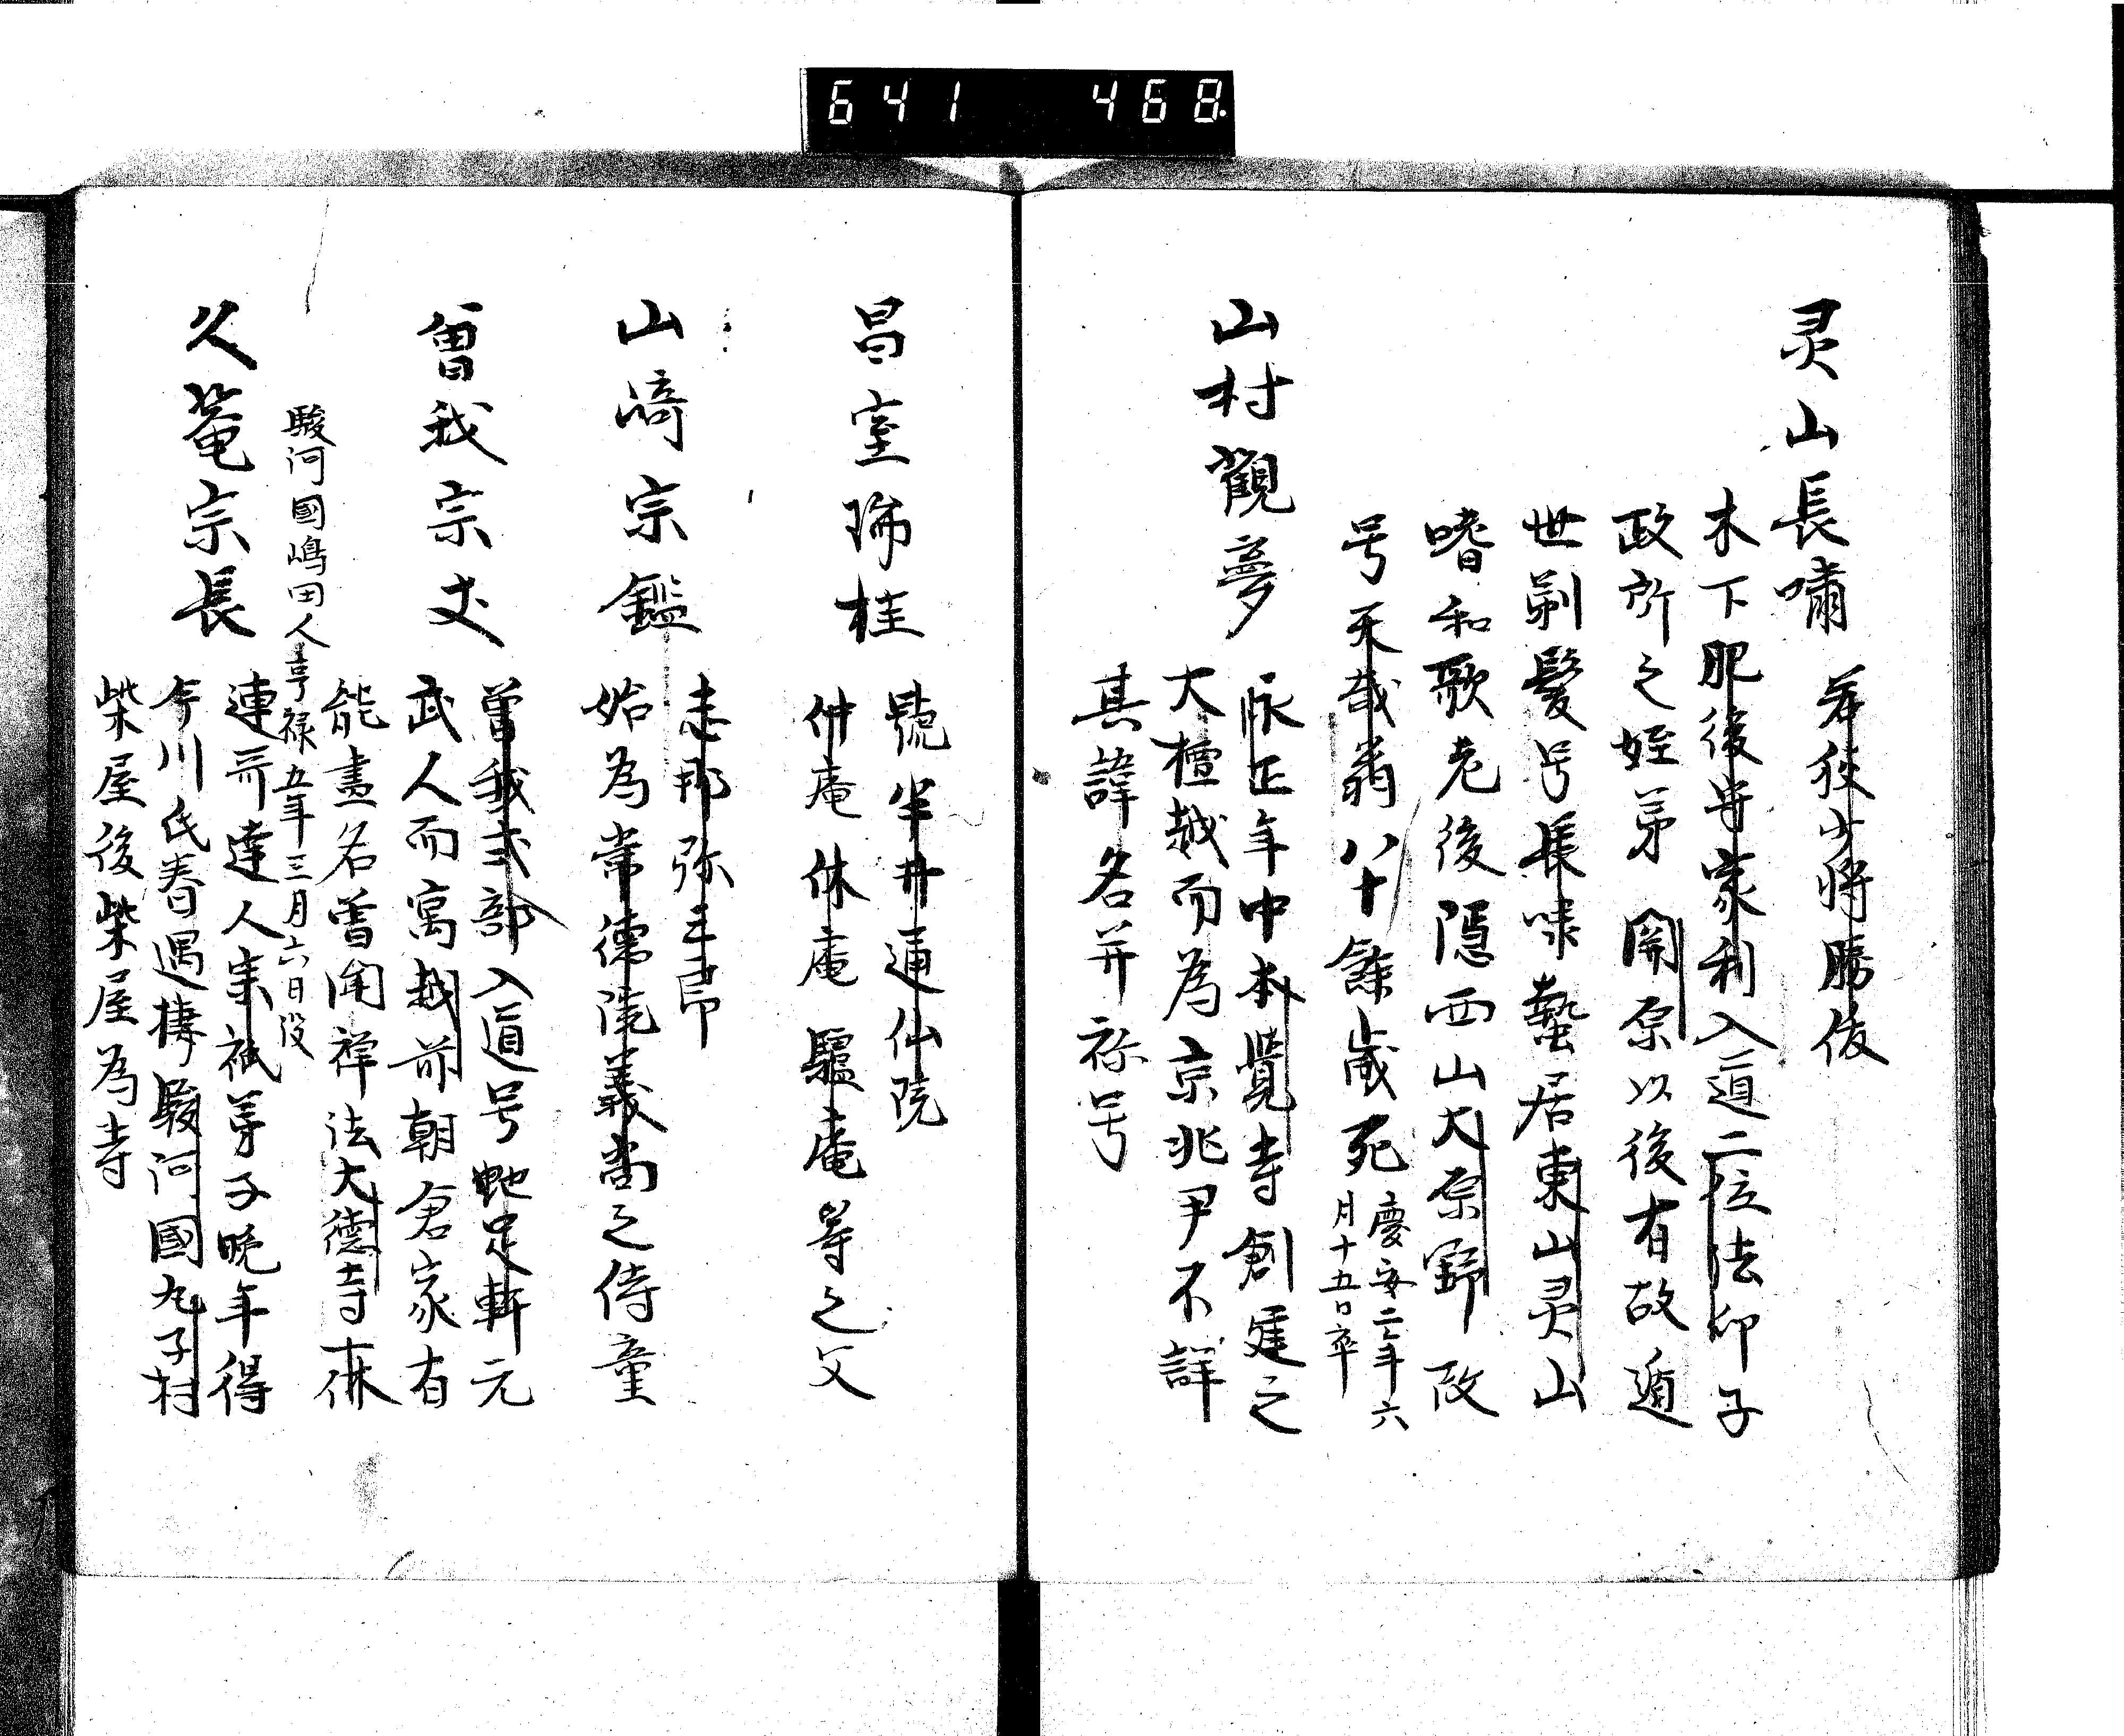 641 468.
灵山長嘯 若狭少将勝俊
木下肥後守家利入道二位法印子
政所之姪弟 関原以後有故遁
世剃髪号長嘯蟄居東山灵山
嗜和歌老後隠西山大原野改
号天哉翁八十餘歳死 慶安二年六
月十五日卒
山村觀夢
永正年中本覺寺創建之
大檀越而為京兆尹不詳
其諱名并称号
昌室瑞桂
號半井通仙院
仲庵休庵驢庵等之父
山﨑宗鑑
志那弥三郎
始為常徳院義尚之侍童
曽我宗丈
曽我式部入道号蛇足軒元
武人而寓越前朝倉家有
能畫名曽聞禅法大徳寺一休
駿河國嶋田人享禄五年三月六日没
久菴宗長
連哥達人宗祇弟子晩年得
今川氏眷遇棲駿河國丸子村
柴屋後柴屋為寺